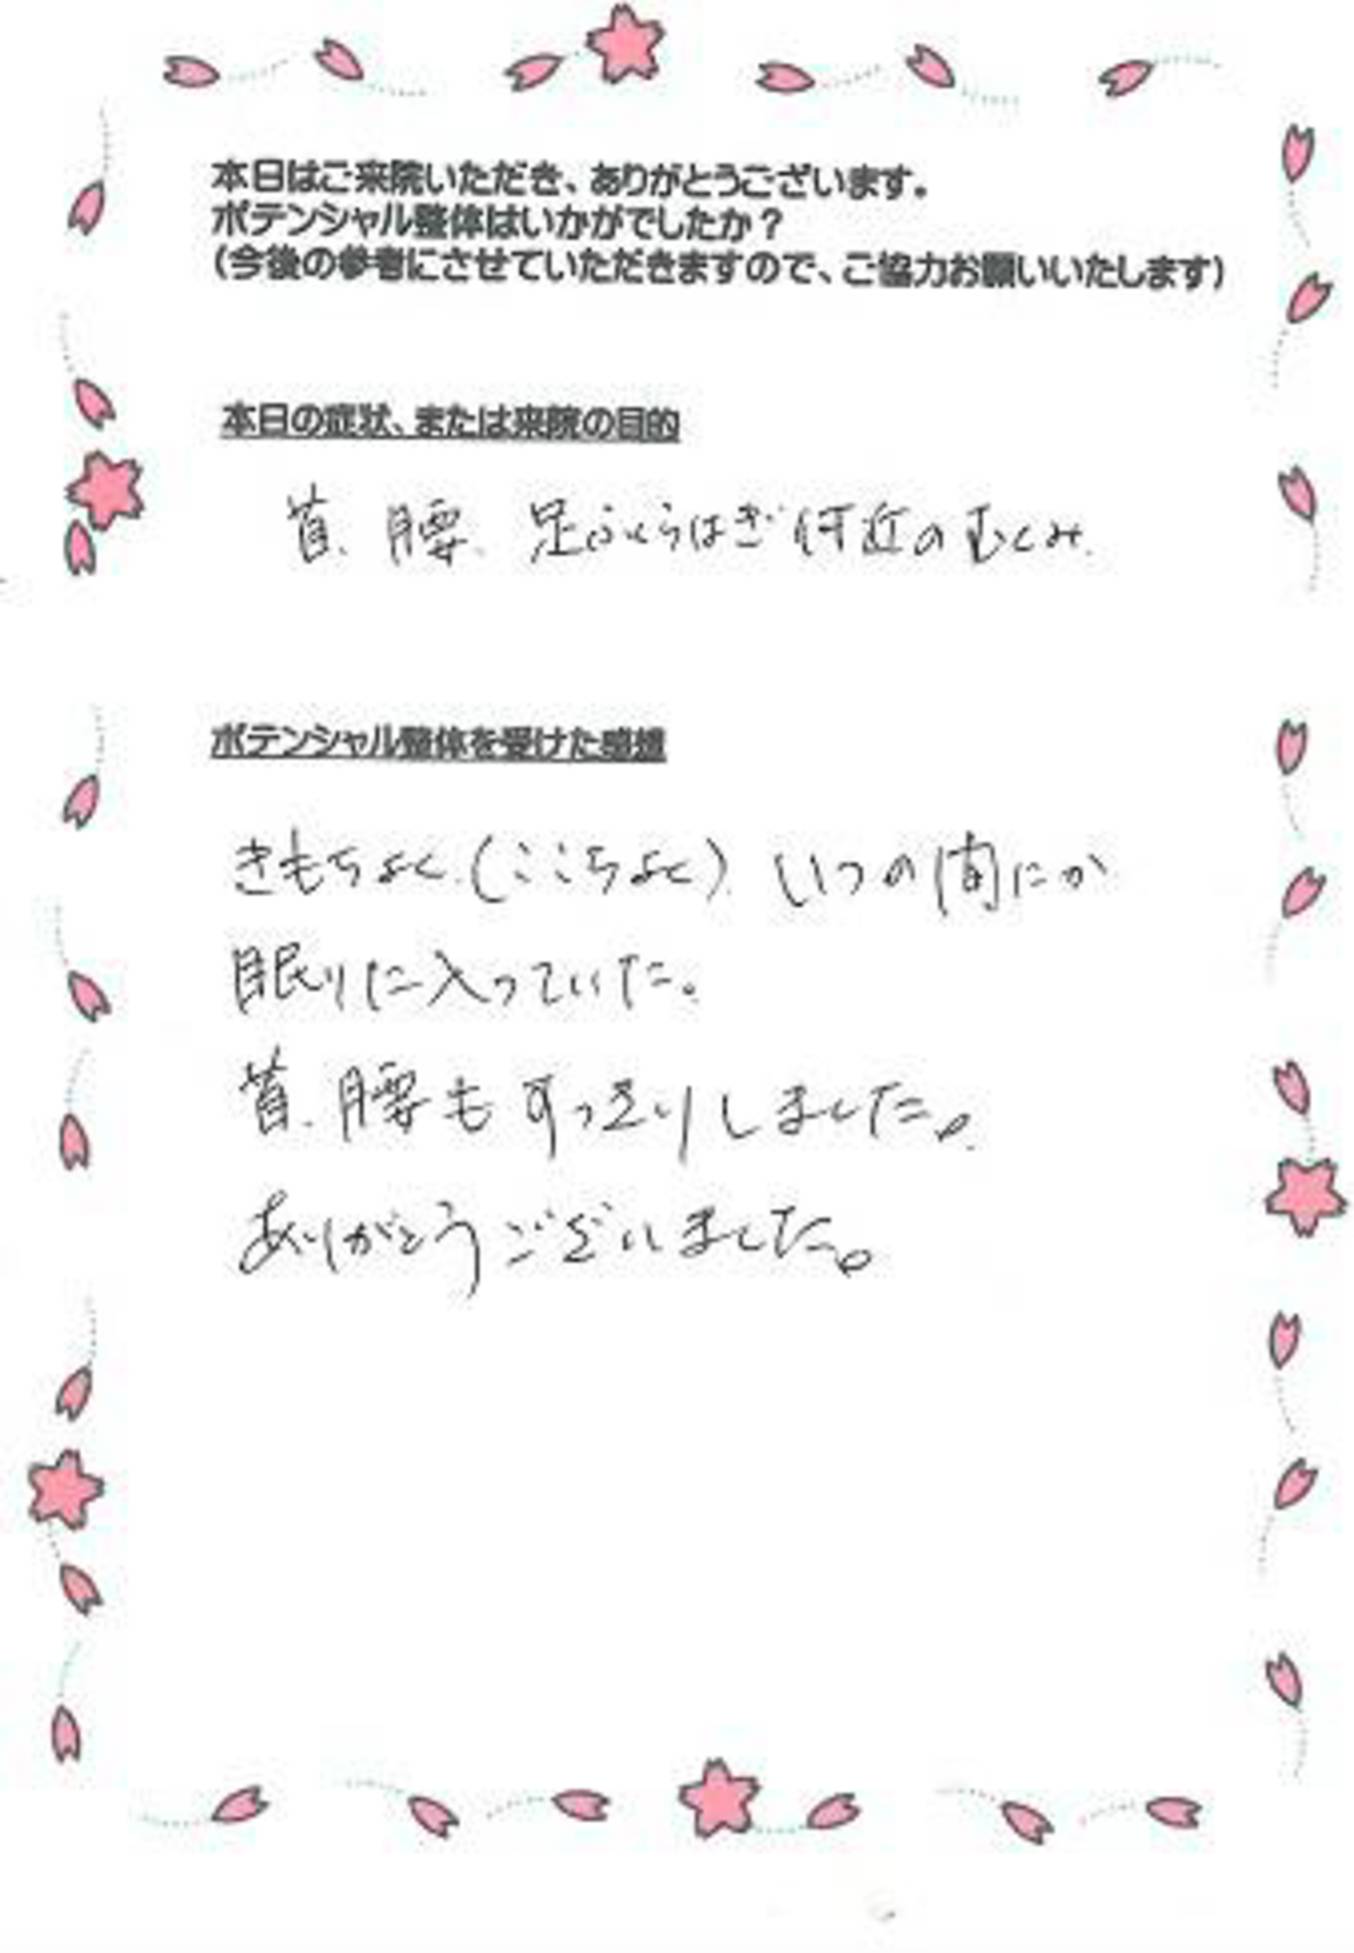 本日はご来院いただき、ありがとうございます。
ポテンシャル整体はいかがでしたか？
（今後の参考にさせていただきますので、ご協力お願いいたします）
本日の症状、または来院の目的
首、腰、足ふくらはぎ付近のむくみ。
ポテンシャル整体を受けた感想
きもちよく、（ここちよく）、いつの間にか
眠りに入っていた。
首、腰もすっきりしました。
ありがとうございました。